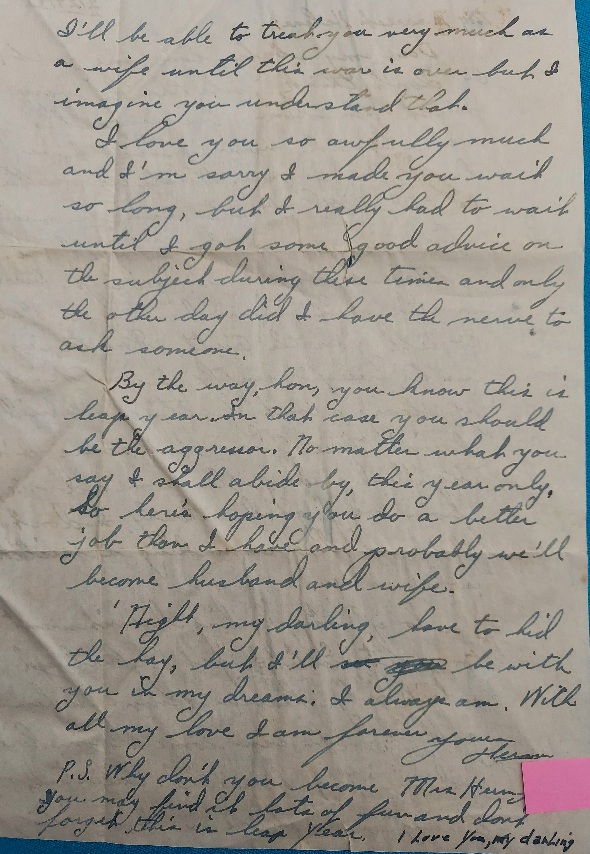 I'll be able to treat you very much as
a wife until this war is over but I
imagine you understand that.
I love you so awfully much
and I'm sorry I made you wait
so long, but I really had to wait
until I got some good advice on
the subject during these times and only
the other day did I have the nerve to
ask someone.
By the way, hon, you know this is
leap year. In that case you should
be the aggressor. No matter what you
say I shall abide by, this year only.
So here's hoping you do a better
job than I have and probably we'll
become husband and wife.
'Night, my darling, have to hid
the hay, but I'll be with
you in my dreams. I always am. With
all my love I am forever yours
P.S. Why don't you become Mrs
You may find it lots of fun and dont
forget this is leap year. I Love You, my darling